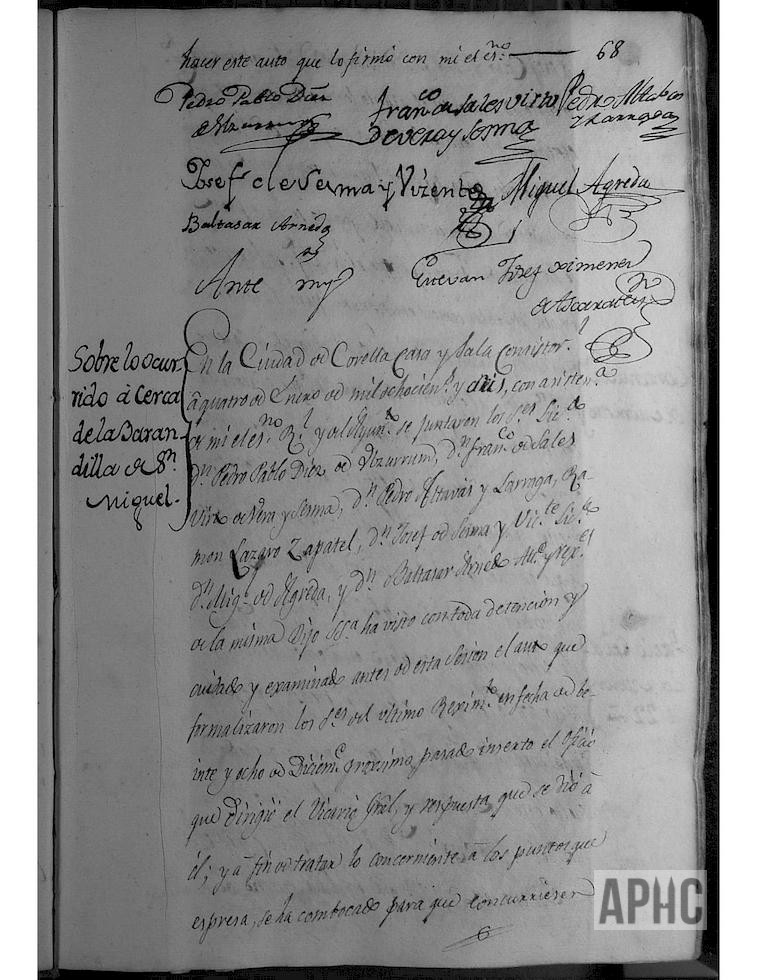 hacer este auto que lo firmó con mi el es.no
68
Pedro Pablo Diaz
de Ulzurrun
Fran.co de Sales virto
de vera y Serma
Pedro Altabas
y Larraga
Josef de Serma y Vizente
Miguel Agreda
Baltasar Arnedo
Ante my
Estevan Josef ximenez
de Ascarate
Sobre lo ocur-
rido à cerca
de la Baran-
dilla de S.n
Miguel.
En la Ciudad de Corella Casa y Sala Consistor.l
à quatro de Enero de mil ochocien.s y diis, con asisten.a
de mi el es.no R.l y del Ayun.to se juntaron los S.es Lic.do
d.n Pedro Pablo Diez de Ulzurrum, d.n Fran.co de Sales
Virto de Vera y Serma, d.n Pedro Altavás y Larraga, Ra-
mon Lazaro Zapatel, d.n Josef de Serma y Vic.te Lic.do
d.n Mig.l de Agreda, y d.n Baltasar Arnedo Alc.e y rex.es
de la misma Dijo SS.a ha visto con toda detencion y
cuidado y examinado antes de esta Sesion el auto que
formalizaron los S.es del ultimo Reximto en fecha de be-
inte y ocho de Diciem.e proximo pasado inserto el Oficio
que Dirigió el Vicario Grál, y respuesta que se dió à
él; y a fin de tratar lo concerniente à los puntos que
espresa, se ha combocado para que concurriesen
APHC